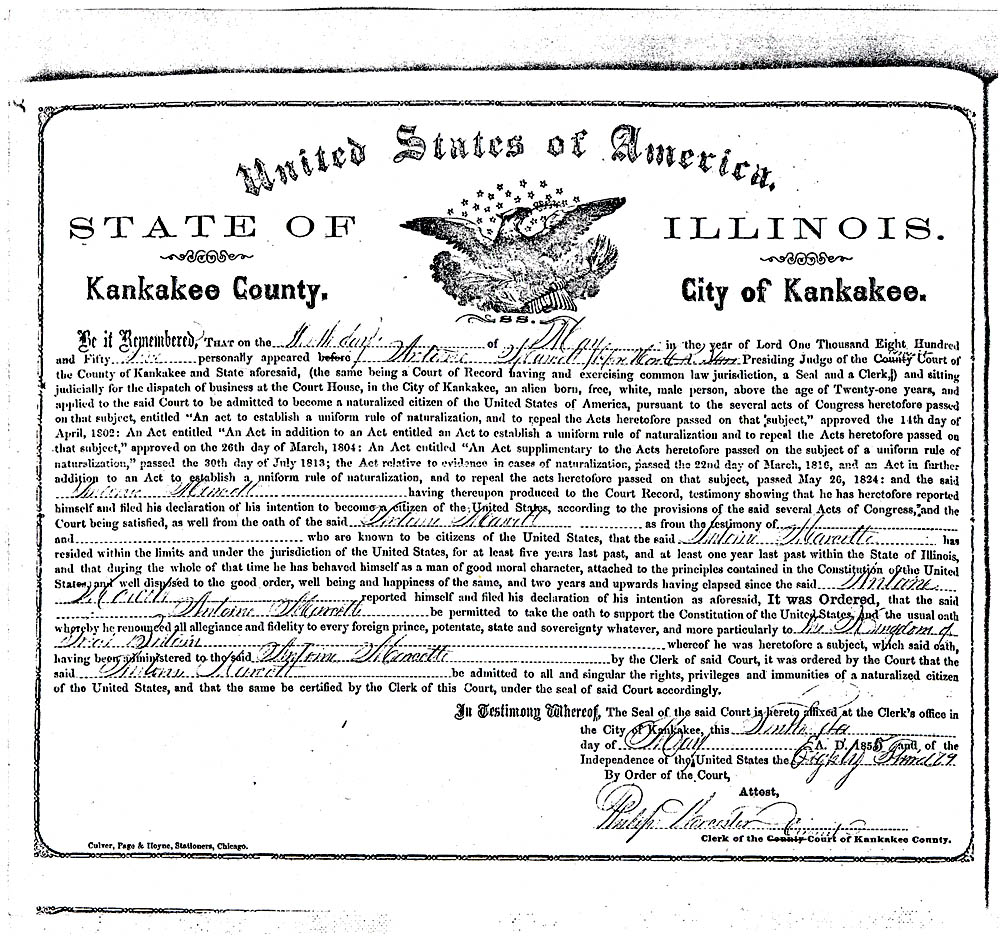 United States of America.
STATE OF ILLINOIS.
Kankakee County. City of Kankakee.
SS.
Be it Remembered, THAT on the day of May in the year of Lord One Thousand Eight Hundred
and Fifty five personally appeared before Antoine Presiding Judge of the County Court of
the County of Kankakee and State aforesaid, (the same being a Court of Record having and exercising common law jurisdiction, a Seal and a Clerk,) and sitting
judicially for the dispatch of business at the Court House, in the City of Kankakee, an alien born, free, white, male person, above the age of Twenty-one years, and
applied to the said Court to be admitted to become a naturalized citizen of the United States of America, pursuant to the several acts of Congress heretofore passed
on that subject, entitled "An act to establish a uniform rule of naturalization, and to repeal the Acts heretofore passed on that subject," approved the 14th day of
April, 1802: An Act entitled "An Act in addition to an Act entitled an Act to establish a uniform rule of naturalization and to repeal the Acts heretofore passed on
that subject," approved on the 26th day of March, 1804: An Act entitled "An Act supplimentary to the Acts heretofore passed on the subject of a uniform rule of
naturalization," passed the 30th day of July 1813; the Act relative to evidence in cases of naturalization, passed the 22nd day of March, 1816, and an Act in further
addition to an Act to establish a uniform rule of naturalization, and to repeal the acts heretofore passed on that subject, passed May 26, 1824: and the said
Antoine having thereupon produced to the Court Record, testimony showing that he has heretofore reported
himself and filed his declaration of his intention to become a citizen of the United States, according to the provisions of the said several Acts of Congress, and the
Court being satisfied, as well from the oath of the said Antoine as from the testimony of
and who are known to be citizens of the United States, that the said Antoine Marcotte has
resided within the limits and under the jurisdiction of the United States, for at least five years last past, and at least one year last past within the State of Illinois,
and that during the whole of that time he has behaved himself as a man of good moral character, attached to the principles contained in the Constitution of the United
States; and well disposed to the good order, well being and happiness of the same, and two years and upwards having elapsed since the said Antoine
reported himself and filed his declaration of his intention as aforesaid, It was Ordered, that the said
Antoine Marcotte be permitted to take the oath to support the Constitution of the United States, and the usual oath
whereby he renounced all allegiance and fidelity to every foreign prince, potentate, state and sovereignty whatever, and more particularly to the Kingdom of
Great Britain whereof he was heretofore a subject, which said oath,
having been administered to the said Antoine Marcotte by the Clerk of said Court, it was ordered by the Court that the
said Antoine be admitted to all and singular the rights, privileges and immunities of a naturalized citizen
of the United States, and that the same be certified by the Clerk of this Court, under the seal of said Court accordingly.
In Testimony Whereof, The Seal of the said Court is hereto affixed at the Clerk's office in
the City of Kankakee, this
day of May A. D. 1855 and of the
Independence of the United States the
By Order of the Court,
Attest,
Philip Worcester
Clerk of the County Court of Kankakee County.
Culver, Page & Hoyne, Stationers, Chicago.